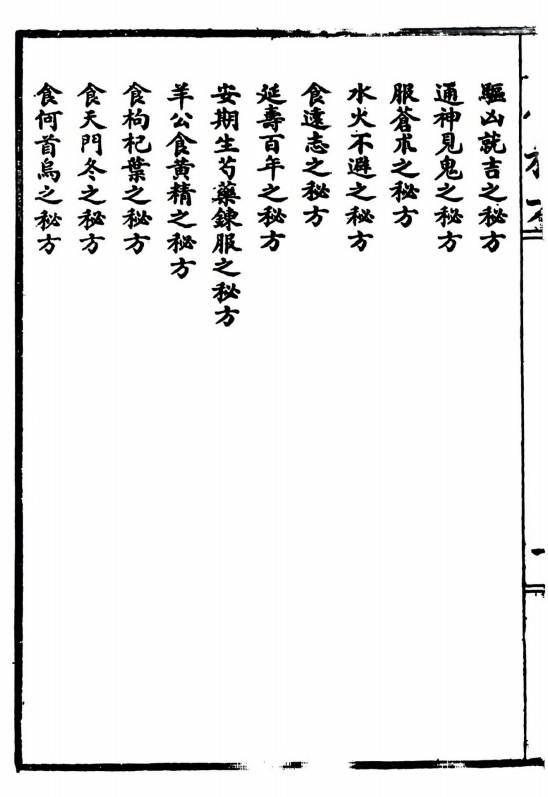 驅凶就吉之秘方
通神見鬼之秘方
服蒼朮之秘方
水火不避之秘方
食遠志之秘方
延壽百年之秘方
安期生芍藥鍊服之秘方
羊公食黃精之秘方
食枸杞葉之秘方
食天門冬之秘方
食何首烏之秘方
一